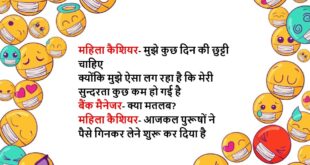 महिला कैशियर- मुझे कुछ दिन की छुट्टी
चाहिए
क्योंकि मुझे ऐसा लग रहा है कि मेरी
सुन्दरता कुछ कम हो गई है
बैंक मैनेजर- क्या मतलब?
महिला कैशियर- आजकल पुरूषों ने
पैसे गिनकर लेने शुरू कर दिया है